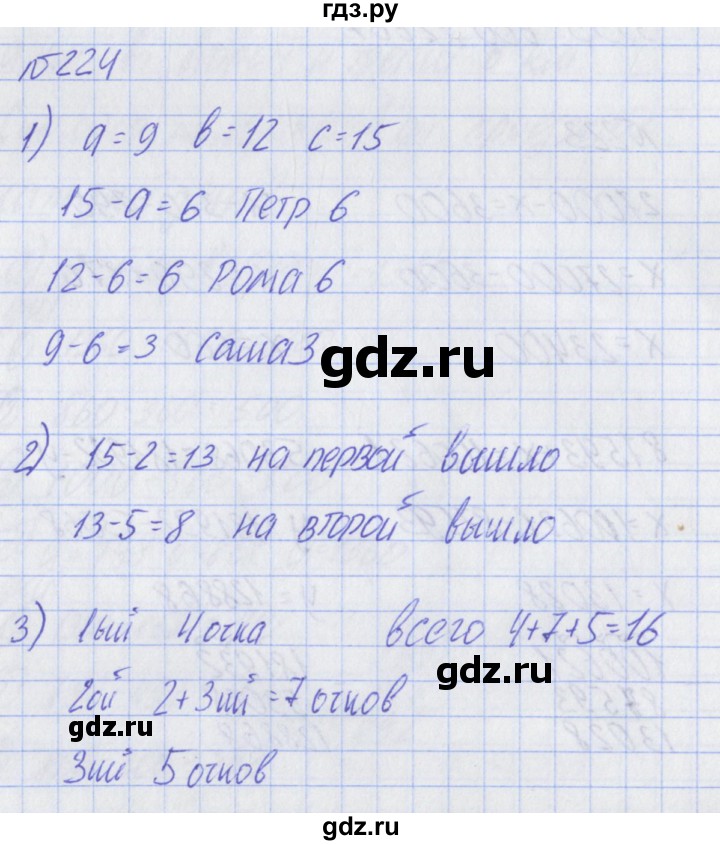 гдз.ру
№224
1) a=9 в=12 c=15
15-a=6 Петр 6
12-6=6 Рома 6
9-6=3 Саша 3
gdz.ru
2) 15-2=13 на первой вышло
13-5=8 на второй вышло
3) 1ый 4 очка всего 4+7+5=16
gdz.ru
2ой 2+3ий=7 очков
gdz.ru
3ий 5 очков
gdz.ru